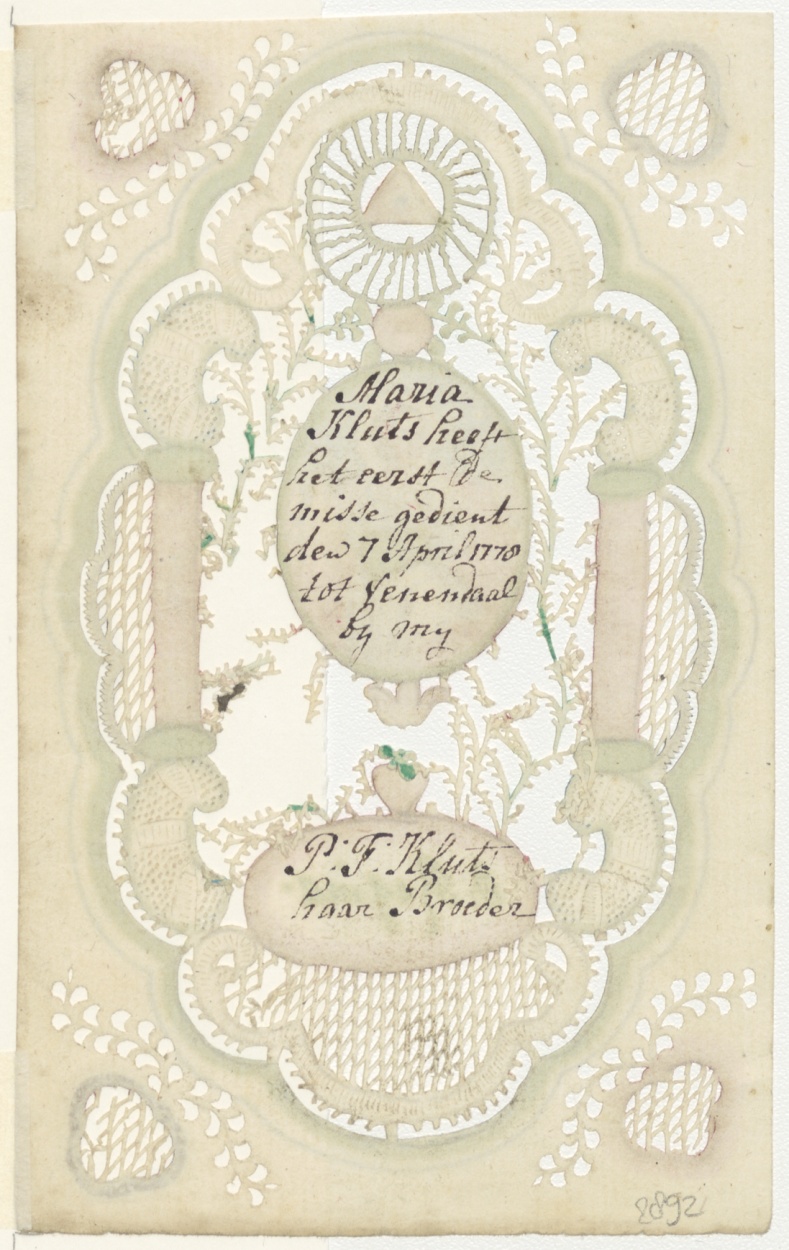 Maria
Kluts heeft
het eerst de
misse gedient
den 7 April 1778
tot Venendaal
by my
P: F: Kluts
haar Broeder
2892